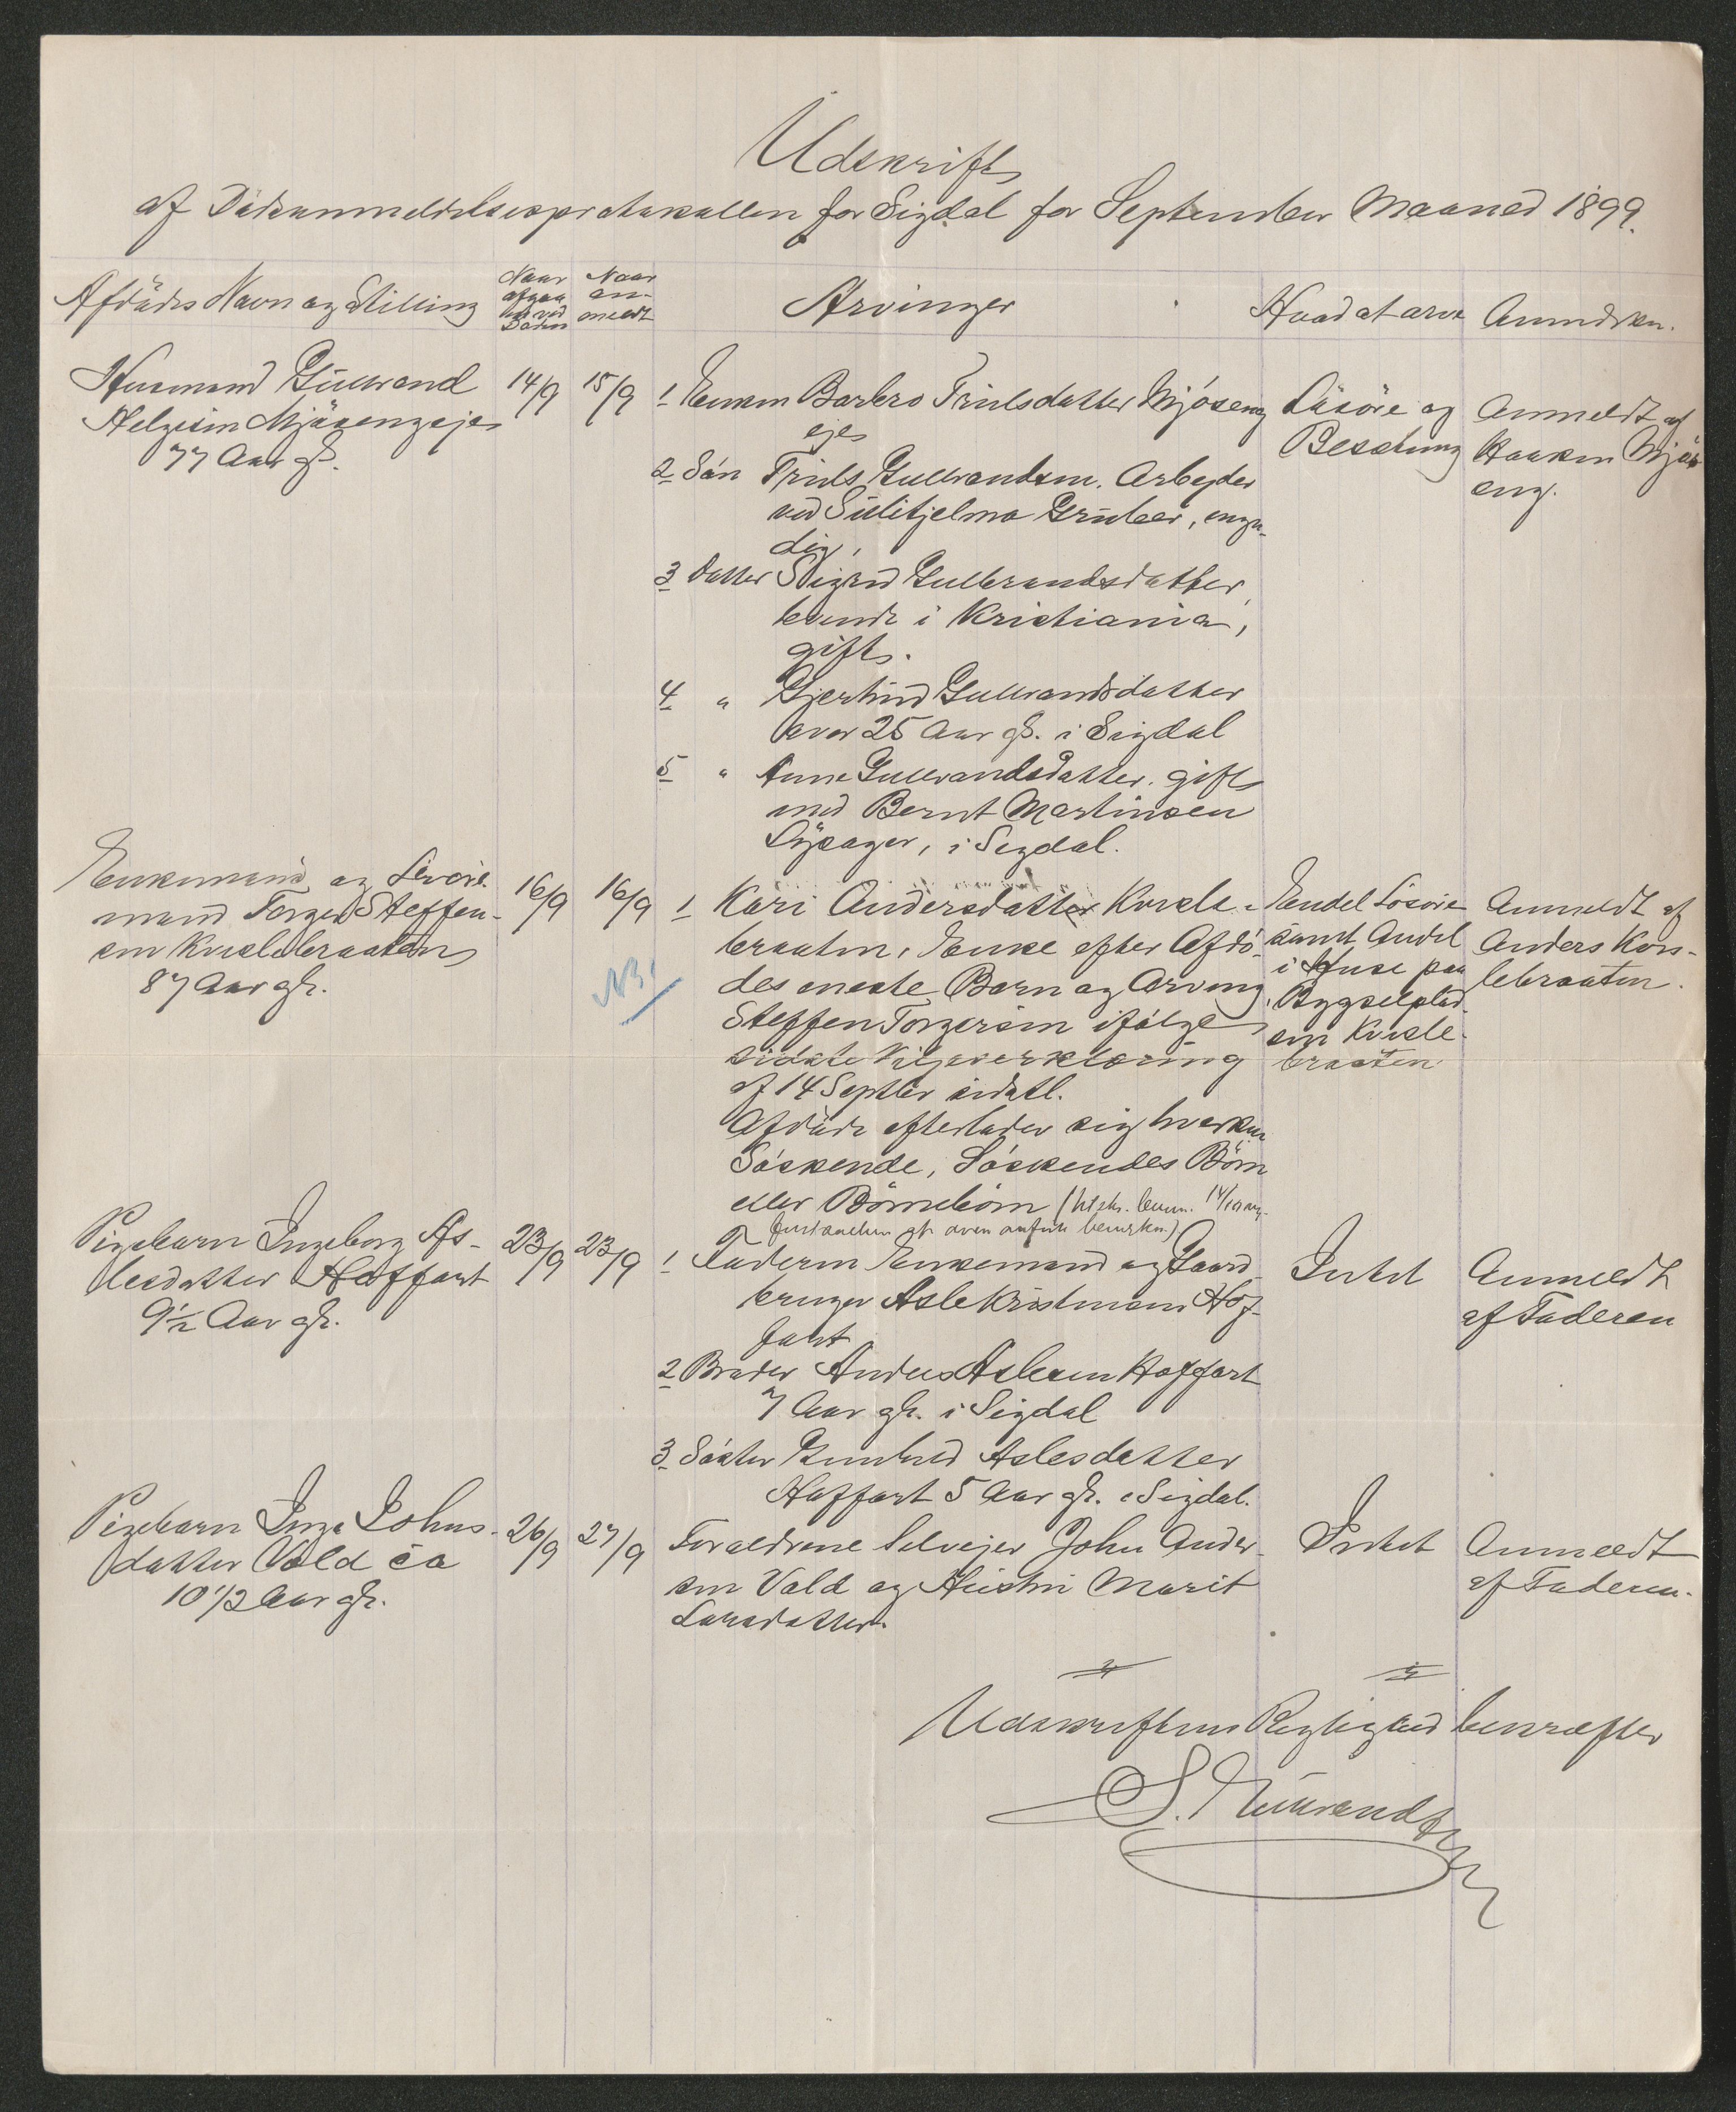 Udskrift
af Dödsanmeldelsesprotokollen for Sigdal for September Maaned 1899.
Afdødes Navn og Stilling
Naar afgaaet ved Døden
Naar anmeldt
Arvinger
Hvad at arve
Anmærkn.
Husmand Gulbrand
Helgesen Mjøsengeje
77 Aar gl.
14/9
15/9
1 Enken Barbro Truelsdatter Mjøseng
eje
2 Søn Truels Gulbrandsen. Arbejder
ved Sulitjelma Gruber, myn-
dig,
3 Datter Sigrid Gulbrandsdatter,
boende i Kristiania,
gift.
4 " Gjertrud Gulbrandsdatter
over 25 Aar gl. i Sigdal
5 " Anne Gulbrandsdatter. gift
med Bernt Martinsen
Lysager, i Sigdal.
Løsøre og
Besætning
Anmeldt af
Haaken Mjøs
eng.
Enkemand og Livøre-
mand Torger Steffen-
sen Kvislebraaten
87 Aar gl.
16/9
16/9
NB!
1 Kari Andersdatter Kvisle-
braaten, Enke efter Afdø-
des eneste Barn og Arving,
Steffen Torgersen ifølge
sidste Viljeserklæring
af 14 Septbr sidstl.
Afdøde efterlader sig hverken
Søskende, Søskendes Börn
eller Börnebørn
Endel Løsøre
samt Andel
i Huse paa
Bygselplad-
sen Kvisle-
braaten
Anmeldt af
Anders Kvis-
lebraaten.
Pigebarn Ingeborg As-
lesdatter Hoffart
9½ Aar gl.
23/9
23/9
1 Faderen Enkemand og Gaard-
bruger Asle Kristensen Hof-
fart
2 Broder Anders Aslesen Hoffart
7 Aar gl. i Sigdal
3 Søster Gunhild Aslesdatter
Hoffart 5 Aar gl. i Sigdal.
Intet
Anmeldt
af Faderen
Pigebarn Inga Johns-
datter Vold ca
10 1/2 Aar gl.
26/9
27/9
Forældrene Selvejer John Ander-
sen Vold og Hustru Marit
Larsdatter.
Intet
Anmeldt
af Faderen.
Udskriftens Rigtighed bekræfter
S. Gulbrandsen